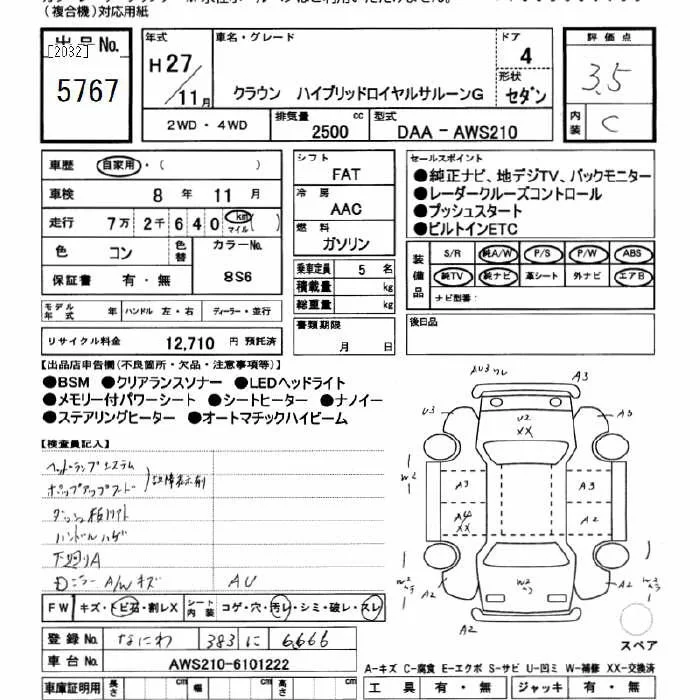 (複合機)対応用紙
出品No.
[2032]
5767
年式
H27/11月
車名・グレード
クラウン ハイブリッドロイヤルサルーンG
ドア
4
形状
セダン
評価点
3.5
内装
C
2WD・4WD
排気量
2500 cc
型式
DAA-AWS210
車歴 自家用・( )
車検 8年 11月
走行 7万 2千 6 4 0 km マイル ( )
色 コン
色替
カラーNo.
8S6
保証書 有・無
モデル年式 年 ハンドル 左・右 ディーラー・並行
リサイクル料金 12,710 円 預託済
シフト
FAT
冷房
AAC
燃料
ガソリン
乗車定員 5 名
積載量 kg
総重量 kg
書類期限
月 日
セールスポイント
●純正ナビ、地デジTV、バックモニター
●レーダークルーズコントロール
●プッシュスタート
●ビルトインETC
装備品
S/R 純A/W P/S P/W ABS
純TV 純ナビ 革シート 外ナビ エアB
ナビ型番:
後日品
【出品店申告欄(不良箇所・欠品・注意事項等)】
●BSM ●クリアランスソナー ●LEDヘッドライト
●メモリー付パワーシート ●シートヒーター ●ナノイー
●ステアリングヒーター ●オートマチックハイビーム
【検査員記入】
ヘッドランプシステム
ポップアップフード
故障表示有
ハンドルハゲ
下廻りA
A/Wキズ
AU
FW キズ・トビ石・割レX シート内装 コゲ・穴・汚レ・シミ・破レ・スレ
登録No. なにわ 383 に 6666
車台No. AWS210-6101222
車庫証明用 長さ cm 幅 cm 高さ cm
A3
U3
U2
XX
A3
W2
A3
A3
A4
XX
A2
W2
A2
A2
A2
スペア
A-キズ C-腐食 E-エクボ S-サビ U-凹ミ W-補修 XX-交換済
工具 有・無 ジャッキ 有・無